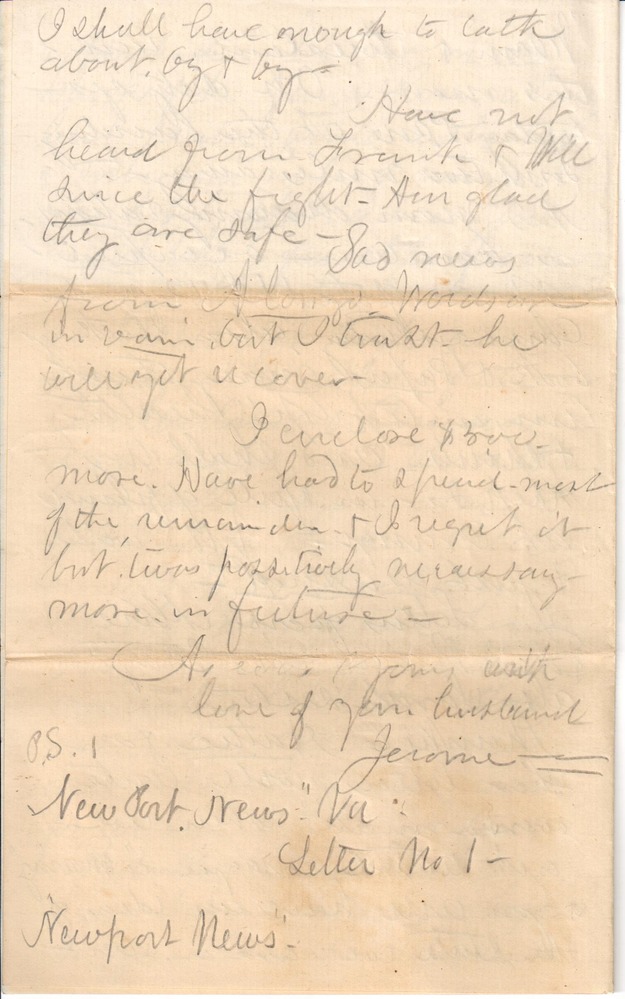 I shall have enough to talk
about, by & by -
Have not
heard from Frank & Will
since the fight - Am glad
they are safe - Sad news
from Alonzo.
in vain, but I trust he
will yet recover -
I enclose
more. Have had to spend most
of the remainder & I regret it
but 'twas possitively necessary -
more in future -
As ever Yours with
love of your husband
Jerome -
P.S. 1
New Port. News" Va "
Letter No 1 -
"Newport News" -